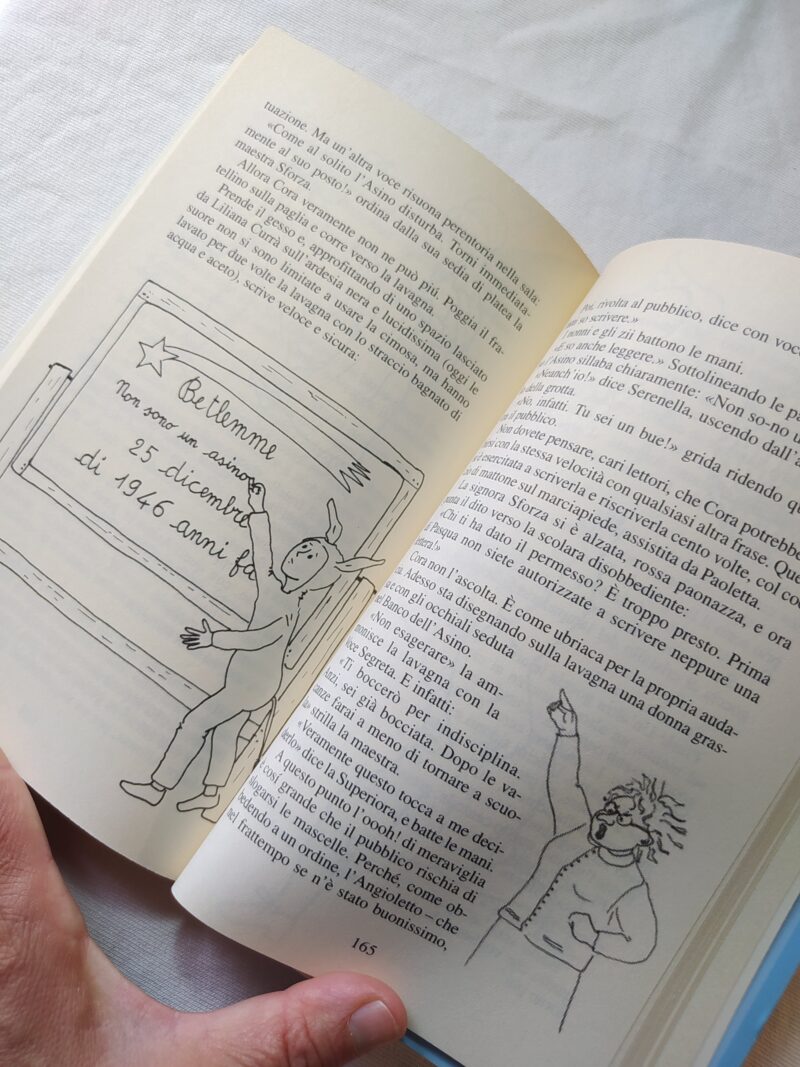 tuazione. Ma un'altra voce risuona perentoria nella sala:
«Come al solito l'Asino disturba. Torni immediata-
mente al suo posto!» ordina dalla sua sedia di platea la
maestra Sforza.
Allora Cora veramente non ne può più. Poggia il fra-
tellino sulla paglia e corre verso la lavagna.
Prende il gesso e, approfittando di uno spazio lasciato
da Liliana Currà sull'ardesia nera e lucidissima (oggi le
suore non si sono limitate a usare la cimosa, ma hanno
lavato per due volte la lavagna con lo straccio bagnato di
acqua e aceto), scrive veloce e sicura:
Betlemme
Non sono un asino
25 dicembre
di 1946 anni fa
Poi, rivolta al pubblico, dice con voce
so scrivere.»
I nonni e gli zii battono le mani.
«E so anche leggere.» Sottolineando le
l'Asino sillaba chiaramente: «Non so-no
«Neanch'io!» dice Serenella, uscendo dall'
della grotta.
«No, infatti. Tu sei un bue!» grida ridendo
il pubblico.
Non dovete pensare, cari lettori, che Cora potrebbe
con la stessa velocità con qualsiasi altra frase.
esercitata a scriverla e riscriverla cento volte, col
di mattone sul marciapiede, assistita da Paoletta.
La signora Sforza si è alzata, rossa paonazza, e ora
il dito verso la scolara disobbediente:
«Chi ti ha dato il permesso? È troppo presto. Prima
di Pasqua non siete autorizzate a scrivere neppure una
lettera!»
Cora non l'ascolta. È come ubriaca per la propria auda-
Adesso sta disegnando sulla lavagna una donna gras-
e con gli occhiali seduta
nel Banco dell'Asino.
«Non esagerare» la am-
monisce la lavagna con la
Voce Segreta. E infatti:
«Ti boccerò per indisciplina.
Anzi, sei già bocciata. Dopo le va-
canze farai a meno di tornare a scuo-
la» strilla la maestra.
«Veramente questo tocca a me deci-
derlo» dice la Superiora, e batte le mani.
A questo punto l'oooh! di meraviglia
è così grande che il pubblico rischia di
slogarsi le mascelle. Perché, come ob-
bedendo a un ordine, l'Angioletto – che
nel frattempo se n'è stato buonissimo,
165